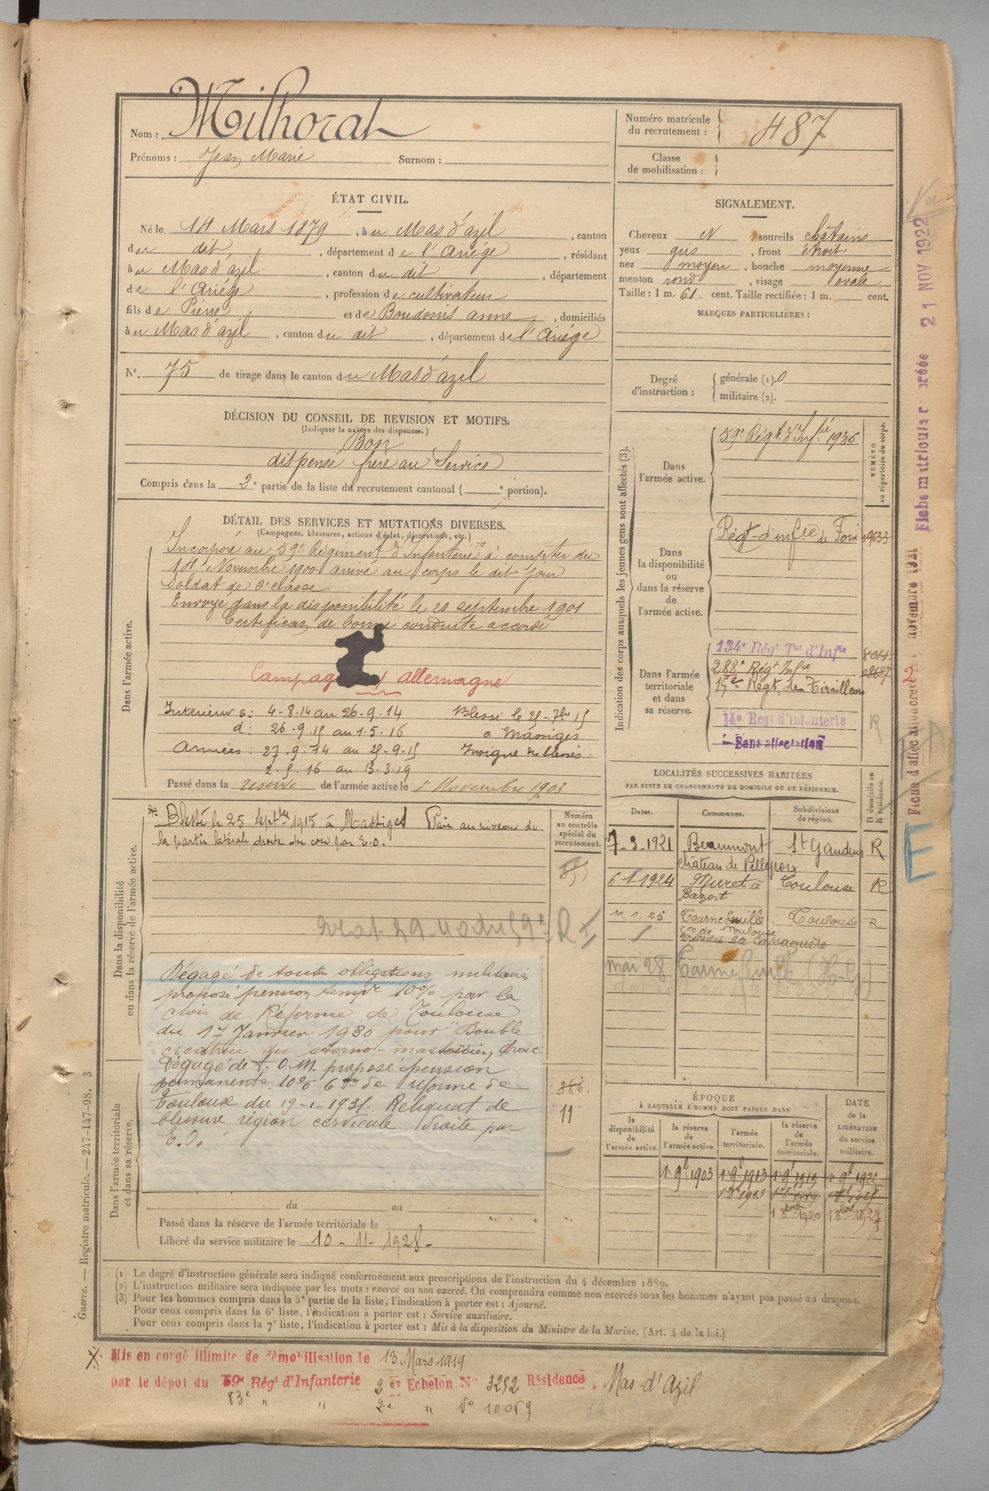 Nom : Milhorat
Prénoms : Jean Marie Surnom :
Numéro matricule du recrutement : 487
Classe de mobilisation :
ÉTAT CIVIL.
Né le 14 Mars 1879, à u Mas d'azil, canton
d u dit, département de l'Ariége, résidant
à u Mas d'azil, canton du dit, département
de l'Ariége, profession de cultivateur
fils de Pierre et de Boudonis anne, domiciliés
à u Mas d'azil, canton du dit, département de l'Ariége
N° 75 de tirage dans le canton du Mas d'azil
SIGNALEMENT.
Cheveux N, sourcils châtains
yeux gris, front étroit
nez moyen, bouche moyenne
menton rond, visage ovale
Taille : 1 m. 61 cent. Taille rectifiée : 1 m. cent.
MARQUES PARTICULIÈRES :
Degré d'instruction : générale (1). 0
militaire (2).
DÉCISION DU CONSEIL DE REVISION ET MOTIFS.
(Indiquer la nature des dispenses.)
Bon
dispensé frère au Service
Compris dans la 2e partie de la liste du recrutement cantonal ( e portion).
DÉTAIL DES SERVICES ET MUTATIONS DIVERSES.
(Campagnes, blessures, actions d'éclat, décorations, etc.)
Dans l'armée active.
Incorporé au 59e Régiment d'Infanterie à compter du
14 Novembre 1900 arrivé au corps le dit jour
Soldat de 2e classe
Envoyé dans la disponibilité le 21 septembre 1901
Certificat de bonne conduite accordé
Campag allemagne
Intérieur S: 4-8.14 au 26-9.14 Blessé le 25-7bre 15
d: 26.9.15 au 1.5.16 à Massiges
Armées : 27.9.14 au 25-9.15 Insigne des blessés.
2.5.16 au 13.3.19
Passé dans la réserve de l'armée active le 1 Novembre 1903
Dans la disponibilité ou dans la réserve de l'armée active.
Blessé le 25 septbre 1915 à Massiges Plaie au niveau de
la partie latérale droite du cou par E.O.
Dégagé de toutes obligations militaires
proposé pension tempre 10% par la
Con de Réforme de Toulouse
du 17 Janvier 1930 pour "Double
cicatrice du sterno-mastoïdien droit
Dégagé de t. O.M. proposé pension
permanente 10% Con de réforme de
Toulouse du 19-1-1931. Reliquat de
blessure région cervicale droite par
E.O.
Dans l'armée territoriale et dans sa réserve.
du au
Passé dans la réserve de l'armée territoriale le
Libéré du service militaire le 10-11-1928.
Indication des corps auxquels les jeunes gens sont affectés (3).
NUMÉRO au répertoire du corps.
Dans l'armée active.
59e Régt d'Infie 1936
Dans la disponibilité ou dans la réserve de l'armée active.
Régt d'infie de Foix
Dans l'armée territoriale et dans sa réserve.
134e Régt Tal d'Infie
288e Régt Infie
Régt de Tirailleurs
14e Régt d'Infanterie R
Sans affectation
LOCALITÉS SUCCESSIVES HABITÉES
PAR SUITE DE CHANGEMENTS DE DOMICILE OU DE RÉSIDENCE.
Dates. Communes. Subdivisions de région. D domicile ou R résidence.
7-3-1921 Beaumont St Gaudens R
château de Pelleport
6-1-1924 Muret à Toulouse R
Bazert
11.1.25 Tournefeuille Toulouse R
mai 28 Tournefeuille (H-G)
Numéro au contrôle spécial du recrutement.
11
ÉPOQUE
À LAQUELLE L'HOMME DOIT PASSER DANS
la disponibilité de l'armée active. la réserve de l'armée active. l'armée territoriale. la réserve de l'armée territoriale.
DATE de la LIBÉRATION du service militaire.
(1) Le degré d'instruction générale sera indiqué conformément aux prescriptions de l'instruction du 4 décembre 1889.
(2) L'instruction militaire sera indiquée par les mots : exercé ou non exercé. On comprendra comme non exercés tous les hommes n'ayant pas passé au drapeau.
(3) Pour les hommes compris dans la 5e partie de la liste, l'indication à porter est : Ajourné.
Pour ceux compris dans la 6e liste, l'indication à porter est : Service auxiliaire.
Pour ceux compris dans la 7e liste, l'indication à porter est : Mis à la disposition du Ministre de la Marine. (Art. 4 de la loi.)
Guerre. — Registre matricule. — 247-147-98. 3
Mis en congé illimité de démobilisation le 13 Mars 1919
par le dépôt du 59e Régt d'Infanterie 2e Echelon N° 3252 Résidence, Mas-d'Azil
83e " " 2e " N° 10059
Fiche matricule créée 21 NOV 1922